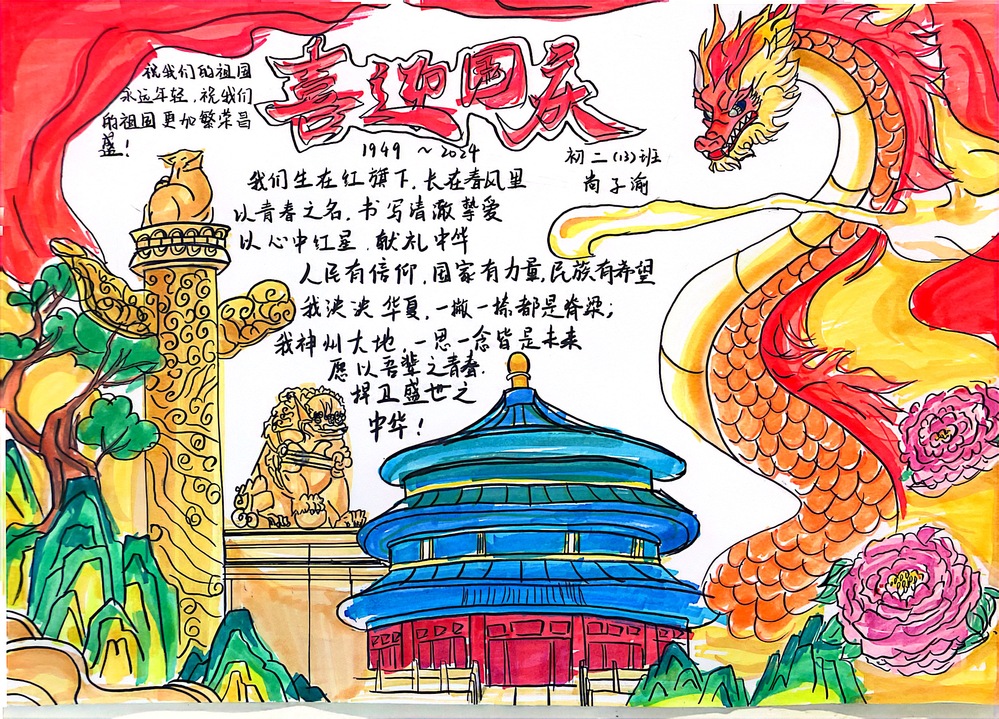 喜迎国庆
祝我们的祖国
永远年轻,祝我们
的祖国更加繁荣昌
盛!
1949 ~ 2024
初二(13)班
尚子渝
我们生在红旗下,长在春风里
以青春之名,书写清澈挚爱
以心中红星,献礼中华
人民有信仰,国家有力量,民族有希望
我泱泱华夏,一撇一捺都是脊梁;
我神州大地,一思一念皆是未来
愿以吾辈之青春.
捍卫盛世之
中华!